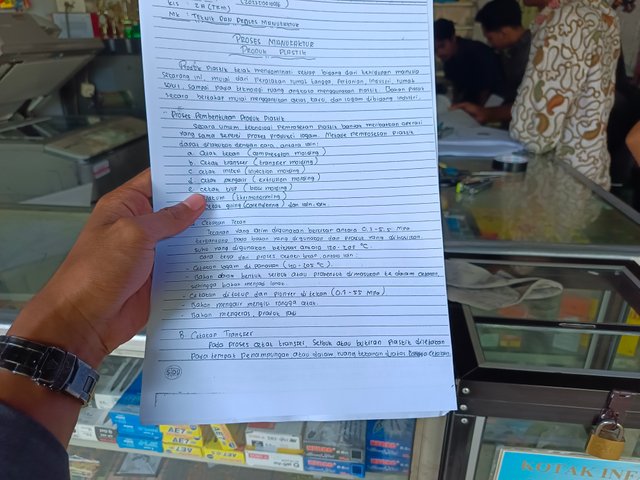 MK : TEKNIK DAN PROSES MANUFAKTUR
PROSES MANUFAKTUR
PRODUK PLASTIK
Produk plastik telah mendominasi setiap bidang dari kehidupan manusia
sekarang ini, mulai dari peralatan rumah tangga, pertanian, industri, rumah
sakit, sampai pada teknologi ruang angkasa menggunakan plastik. Bahan plastik
secara bertahap mulai menggantikan gelas, kayu, dan logam dibidang industri.
Proses Pembentukan Produk Plastik
Secara umum teknologi pemrosesan plastik banyak melibatkan operasi
yang sama seperti proses produksi logam. Metode pemrosesan plastik
dapat dilakukan dengan cara, antara lain :
a. Cetak tekan (compression molding)
b. Cetak transfer (transfer molding)
c. Cetak injeksi (injection molding)
d. Cetak pengalir (extrusion molding)
e. Cetak tiup (blow molding)
(thermoforming)
(calendering) dan lain-lain.
Cetakan Tekan
Tekanan yang dirim digunakan berkisar antara 0,1-5,5 Mpa
tergantung pada bahan yang digunakan dan produk yang dihasilkan.
suhu yang digunakan berkisar antara 150-205 °C.
Cara kerja dari proses cetak tekan antara lain :
- Cetakan logam di panaskan (150-205 °C).
- Bahan dalam bentuk serbuk atau prabentuk dimasukan ke dalam cetakan,
sehingga bahan menjadi lunak.
- Cetakan ditutup dan plunyer di tekan (0,1-55 Mpa)
- Bahan mengalir mengisi rongga cetak.
- Bahan mengeras, produk jadi
B. Cetakan Transfer
Pada proses cetak transfer, serbuk atau butiran plastik diletakan
pada tempat penampungan atau dalam ruang tekanan diatas rongga cetakan
SIDU
AE7
KOTAK INF